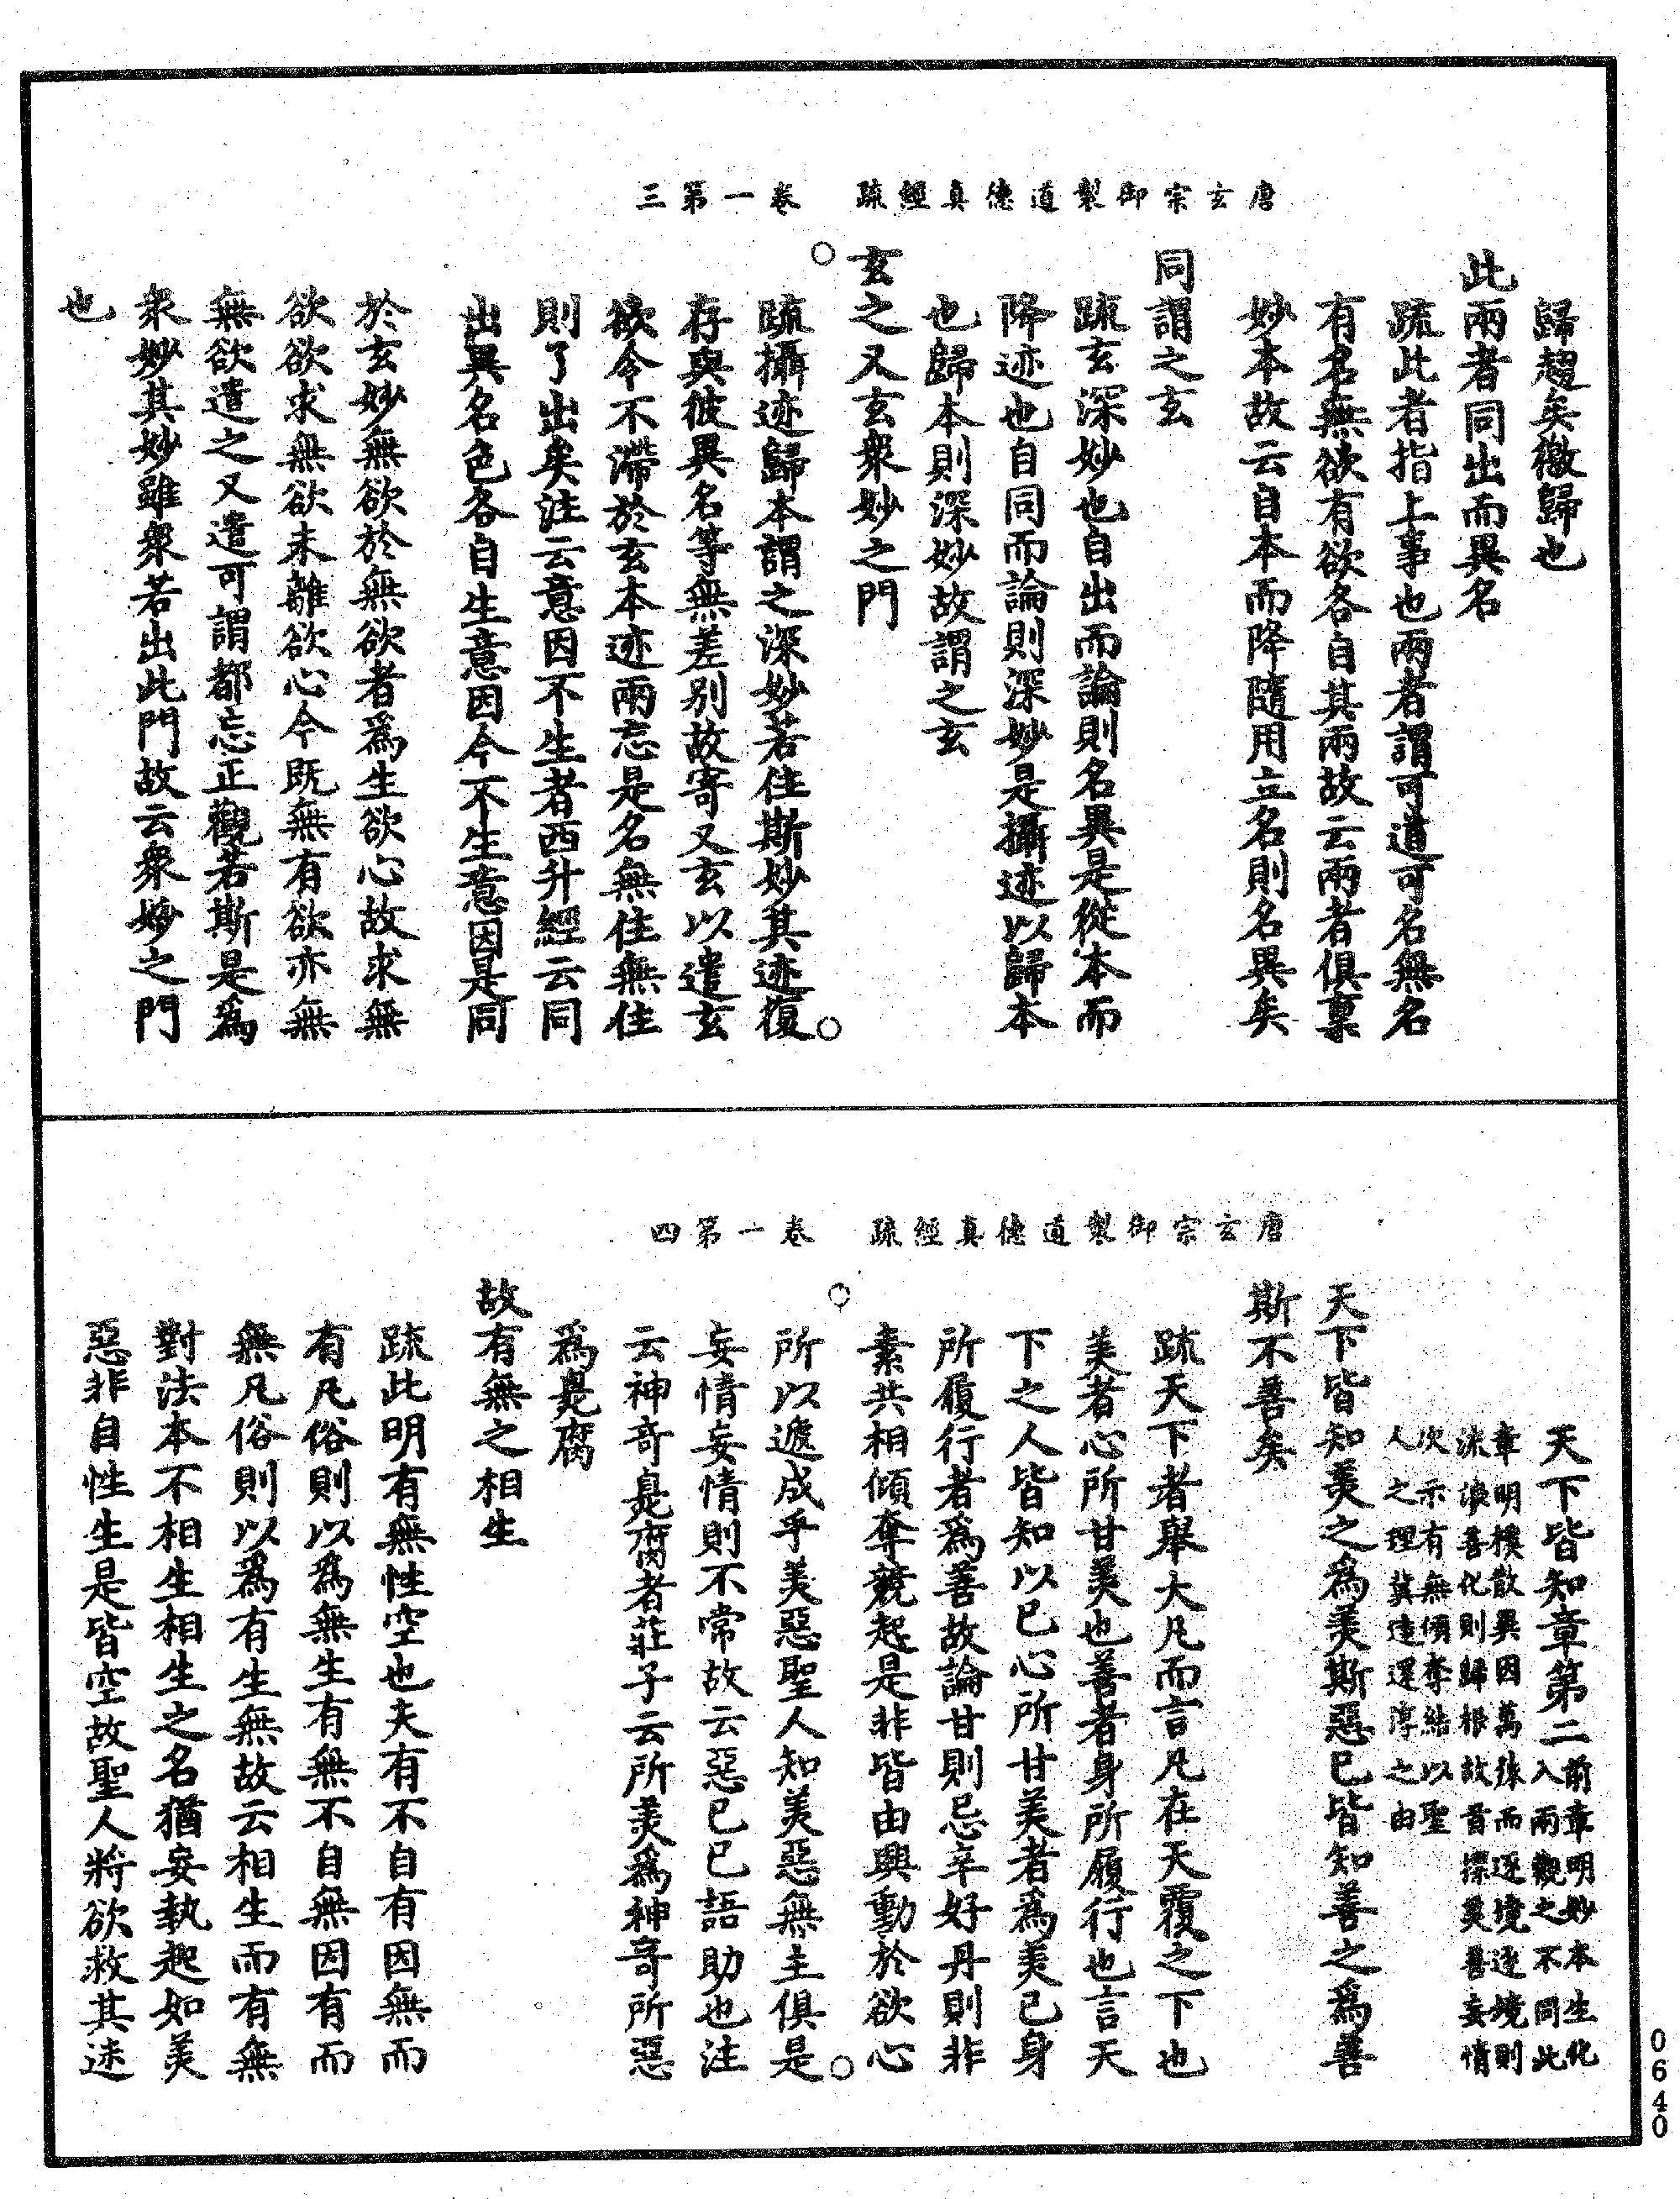 唐玄宗御製道德真經疏　卷一第三
歸趣矣徼歸也
此兩者同出而異名
疏此者指上事也兩者謂可道可名無名
有名無欲有欲各自其兩故云兩者俱稟
妙本故云自本而降隨用立名則名異矣
同謂之玄
疏玄深妙也自出而論則名異是從本而
降迹也自同而論則深妙是攝迹以歸本
也歸本則深妙故謂之玄
玄之又玄衆妙之門
疏攝迹歸本謂之深妙若住斯妙其迹復
存與彼異名等無差别故寄又玄以遣玄
欲令不滯於玄本迹兩忘是名無住無住
則了出矣注云意因不生者西升經云同
出異名色各自生意因今不生意因是同
於玄妙無欲於無欲者爲生欲心故求無
欲欲求無欲未離欲心今既無有欲亦無
無欲遣之又遣可謂都忘正觀若斯是爲
衆妙其妙雖衆若出此門故云衆妙之門
也
唐玄宗御製道德真經疏　卷一第四
天下皆知章第二
前章明妙本生化
入兩觀之不同此
章明樸散異因萬殊而逐境逐境則
流浪善化則歸根故首摽美善妄情
次示有無傾奪結以聖
人之理冀達還淳之由
天下皆知美之爲美斯惡已皆知善之爲善
斯不善矣
疏天下者舉大凡而言凡在天覆之下也
美者心所甘美也善者身所履行也言天
下之人皆知以已心所甘美者爲美已身
所履行者爲善故論甘則忌辛好丹則非
素共相傾奪競起是非皆由興動於欲心
所以遞成乎美惡聖人知美惡無主俱是
妄情妄情則不常故云惡已已語助也注
云神奇臰腐者莊子云所美爲神奇所惡
爲臰腐
故有無之相生
疏此明有無性空也夫有不自有因無而
有凡俗則以爲無生有無不自無因有而
無凡俗則以爲有生無故云相生而有無
對法本不相生相生之名猶妄執起如美
惡非自性生是皆空故聖人將欲救其迷
0640